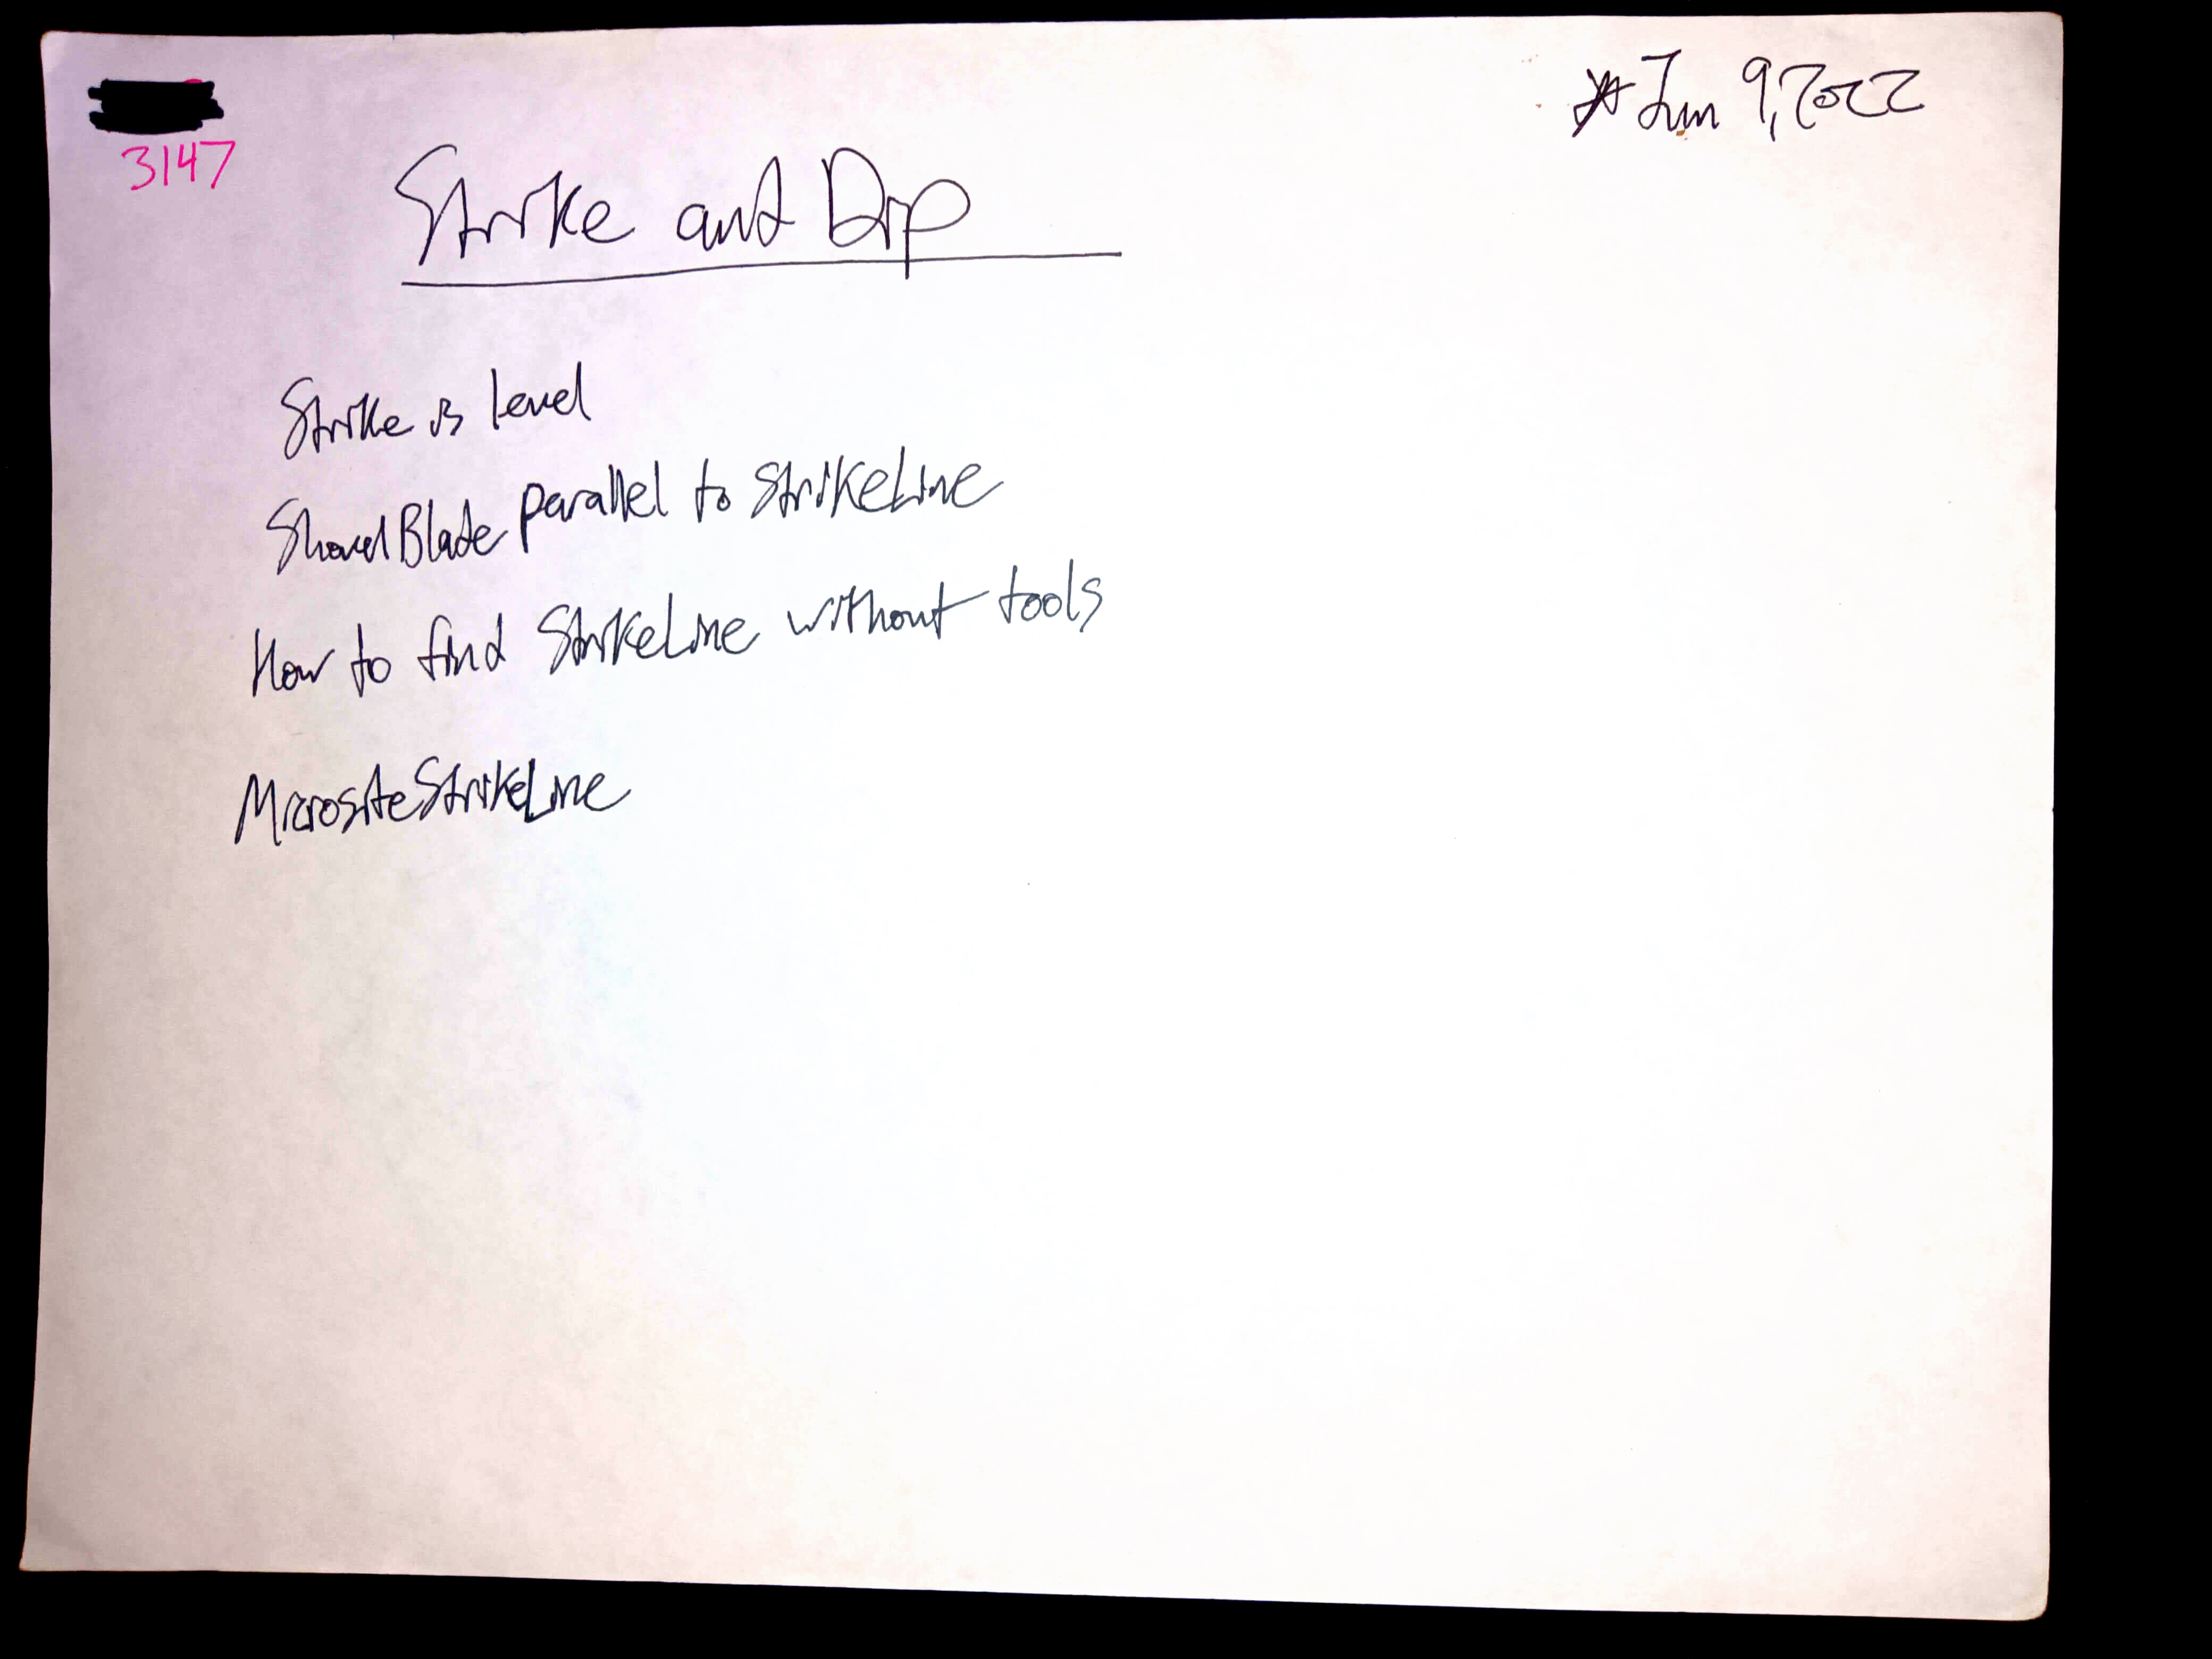 Jun 9, 2022
3147
Strike and Dip
Strike is level
ShovelBlade parallel to StrikeLine
How to find StrikeLine without tools
MicrositeStrikeLine